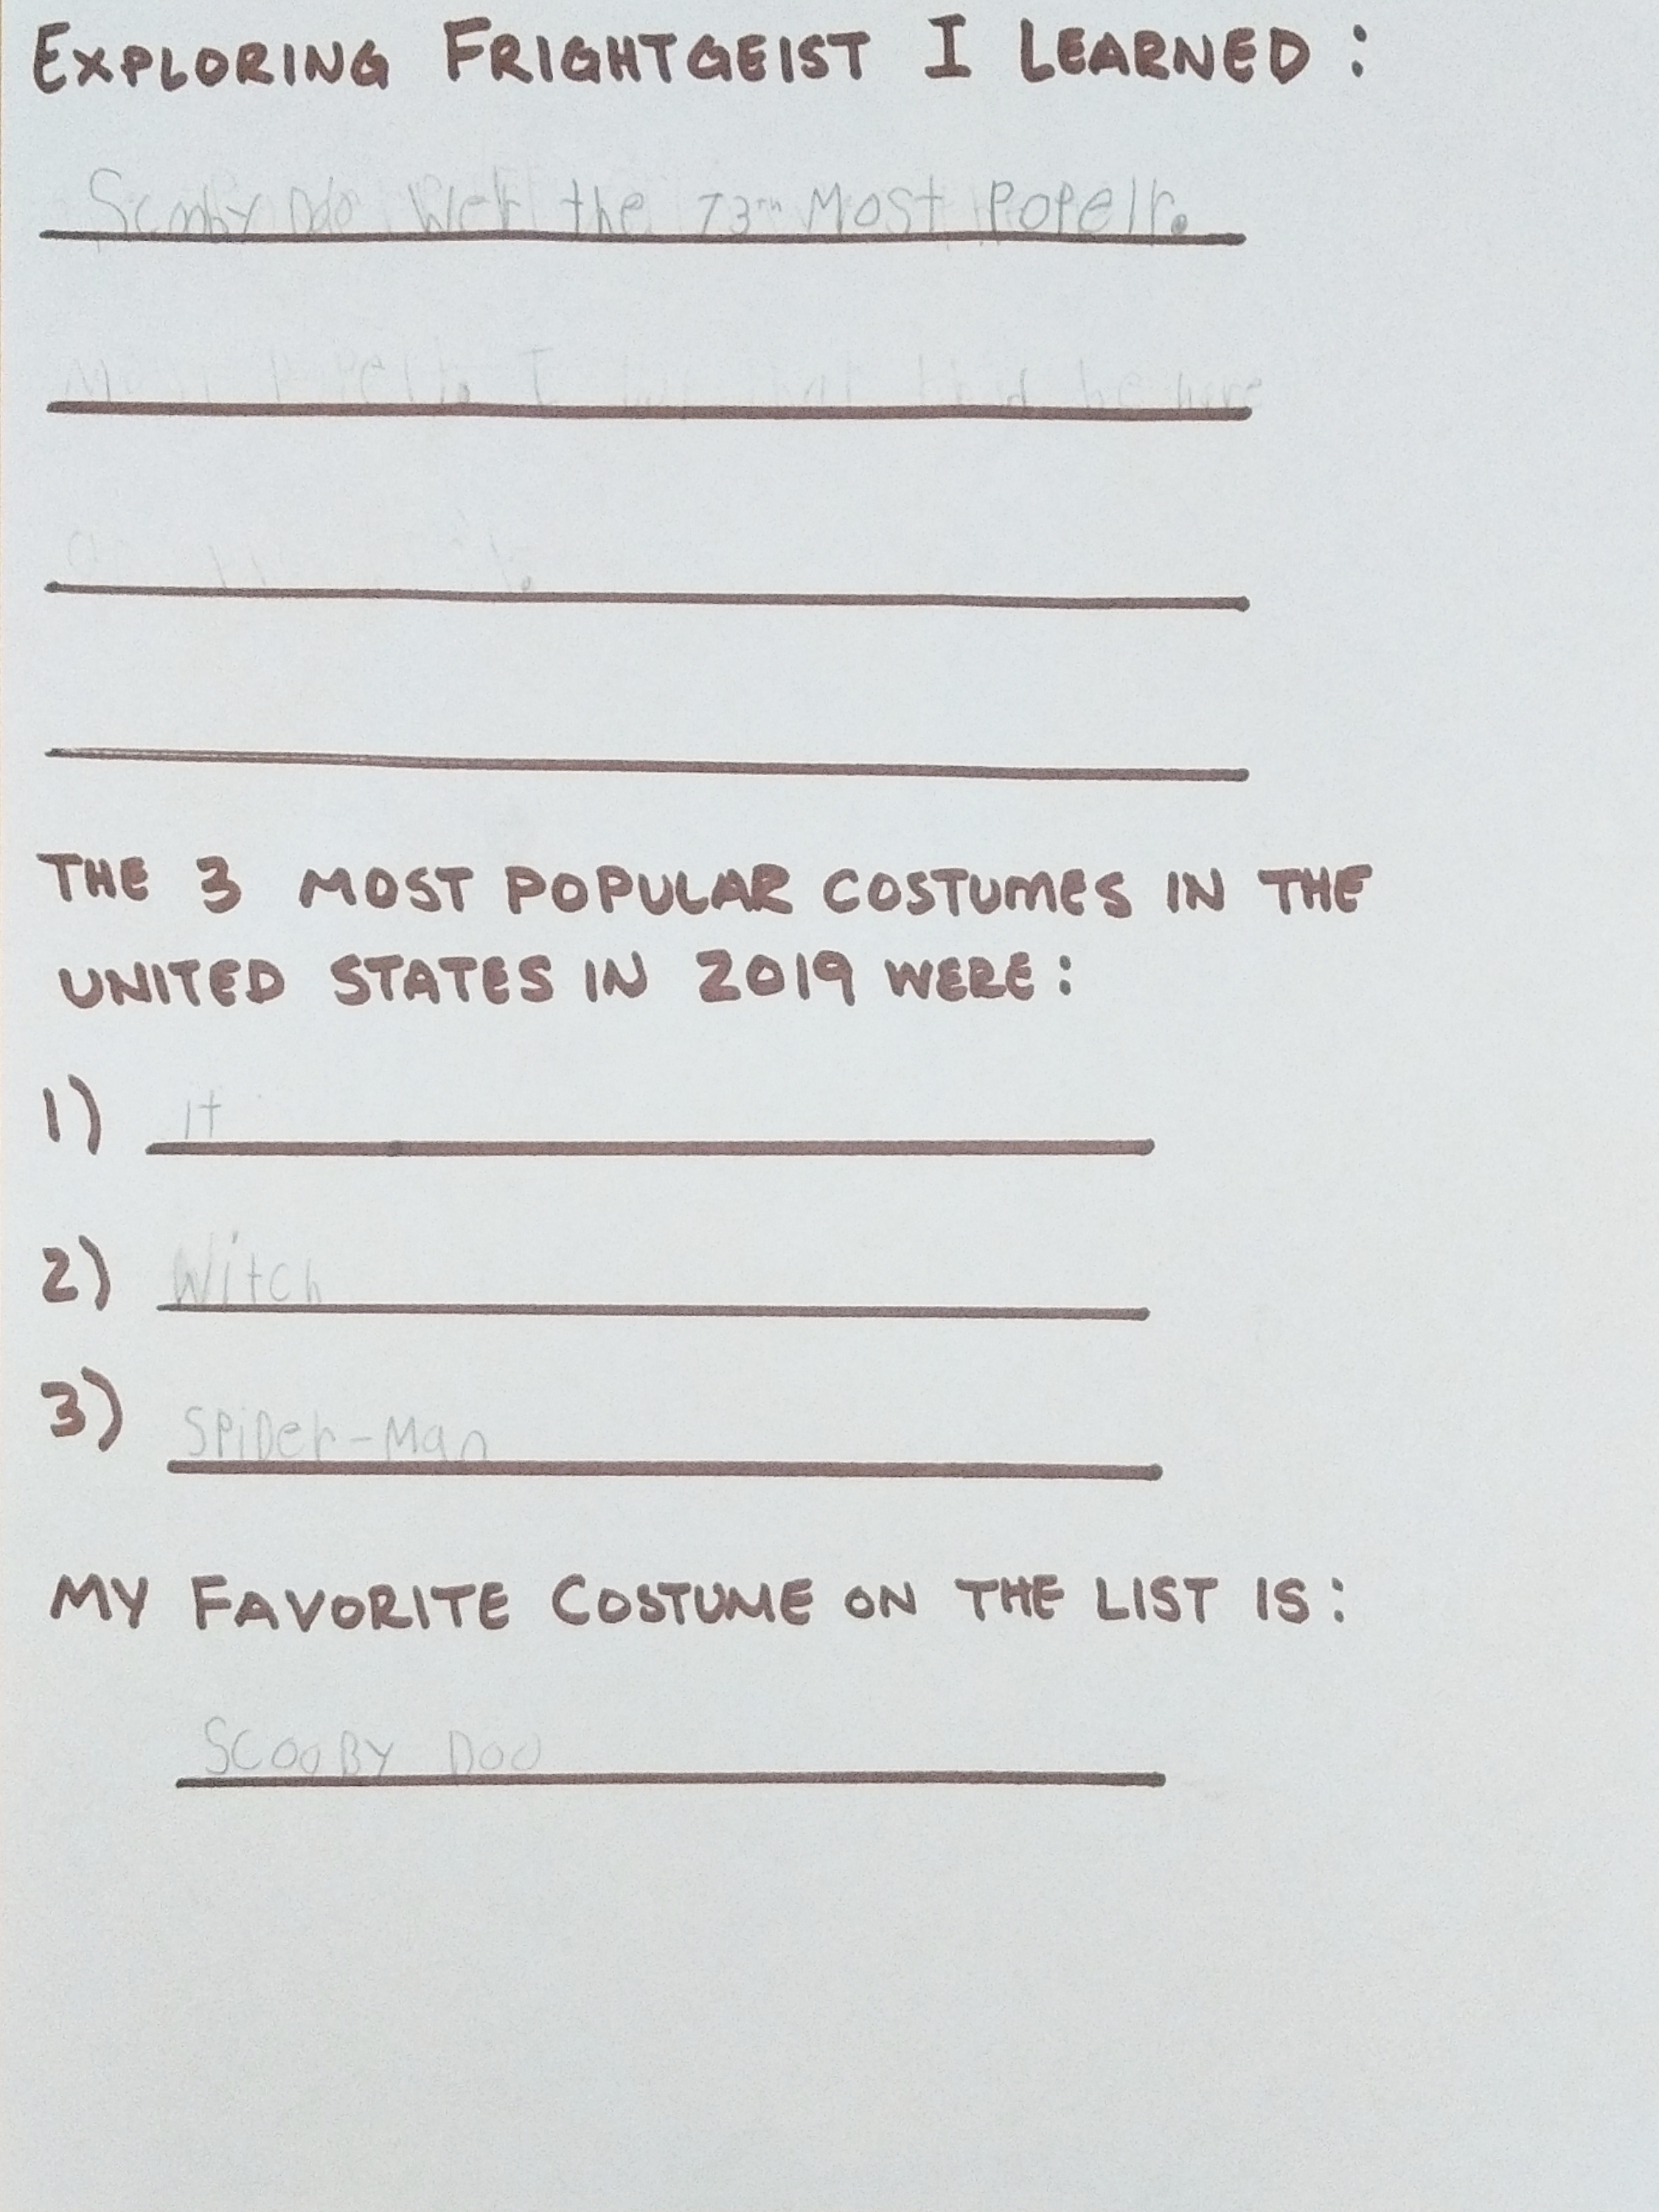 EXPLORING FRIGHTGEIST I LEARNED :
Scooby Doo Wer the 73rd Most Popelr.
THE 3 MOST POPULAR COSTUMES IN THE
UNITED STATES IN 2019 WERE :
1) It
2) Witch
3) SPiDer-Man
MY FAVORITE COSTUME ON THE LIST IS :
SCOOBY DOO